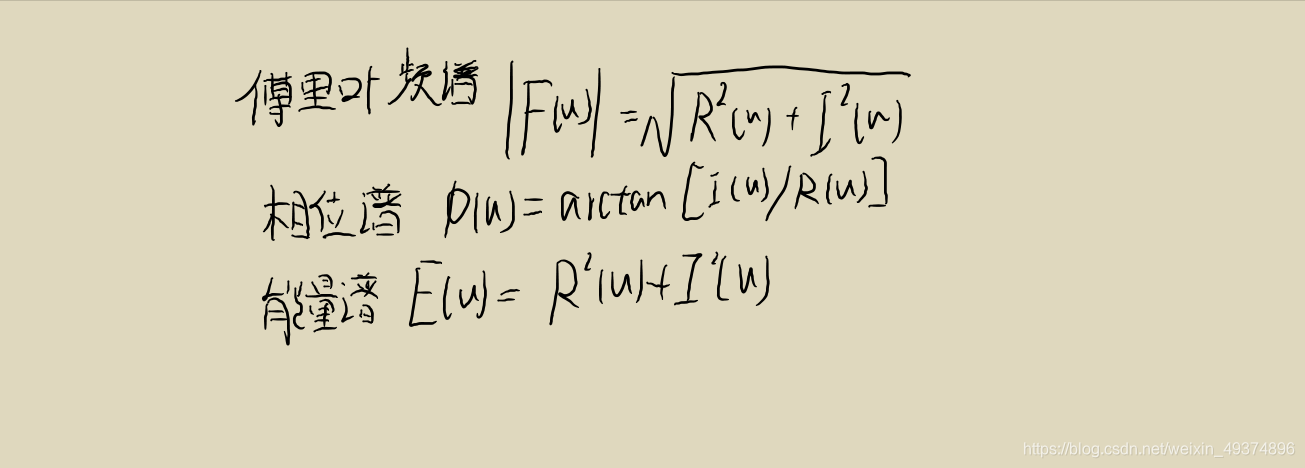 傅里叶频谱 |F(u)| = √R²(u) + I²(u)
相位谱 φ(u) = arctan [I(u)/R(u)]
能量谱 E(u) = R²(u) + I²(u)
https://blog.csdn.net/weixin_49374896